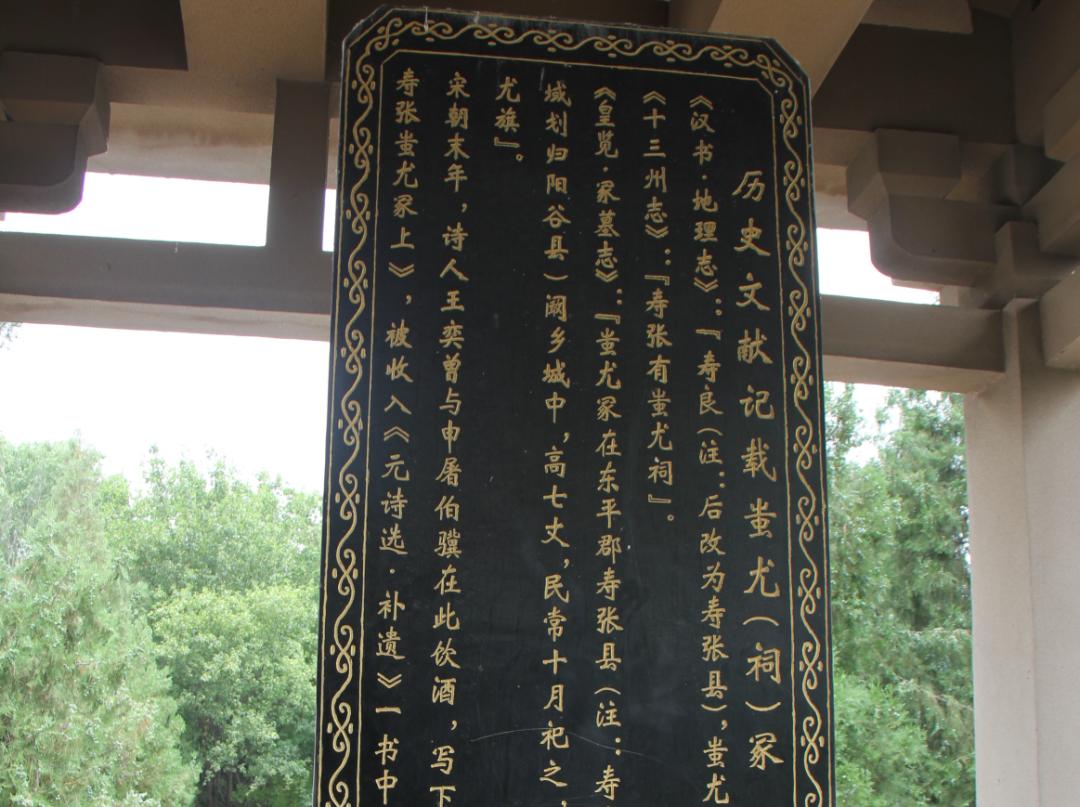 历史文献记载蚩尤（祠）冢
《汉书·地理志》：『寿良（注：后改为寿张县），蚩尤
《十三州志》：『寿张有蚩尤祠』。
《皇览·冢墓志》：『蚩尤冢在东平郡寿张县（注：寿
域划归阳谷县）阚乡城中，高七丈，民常十月祀之，
尤旗』。
宋朝末年，诗人王奕曾与申屠伯骥在此饮酒，写下
寿张蚩尤冢上》，被收入《元诗选·补遗》一书中